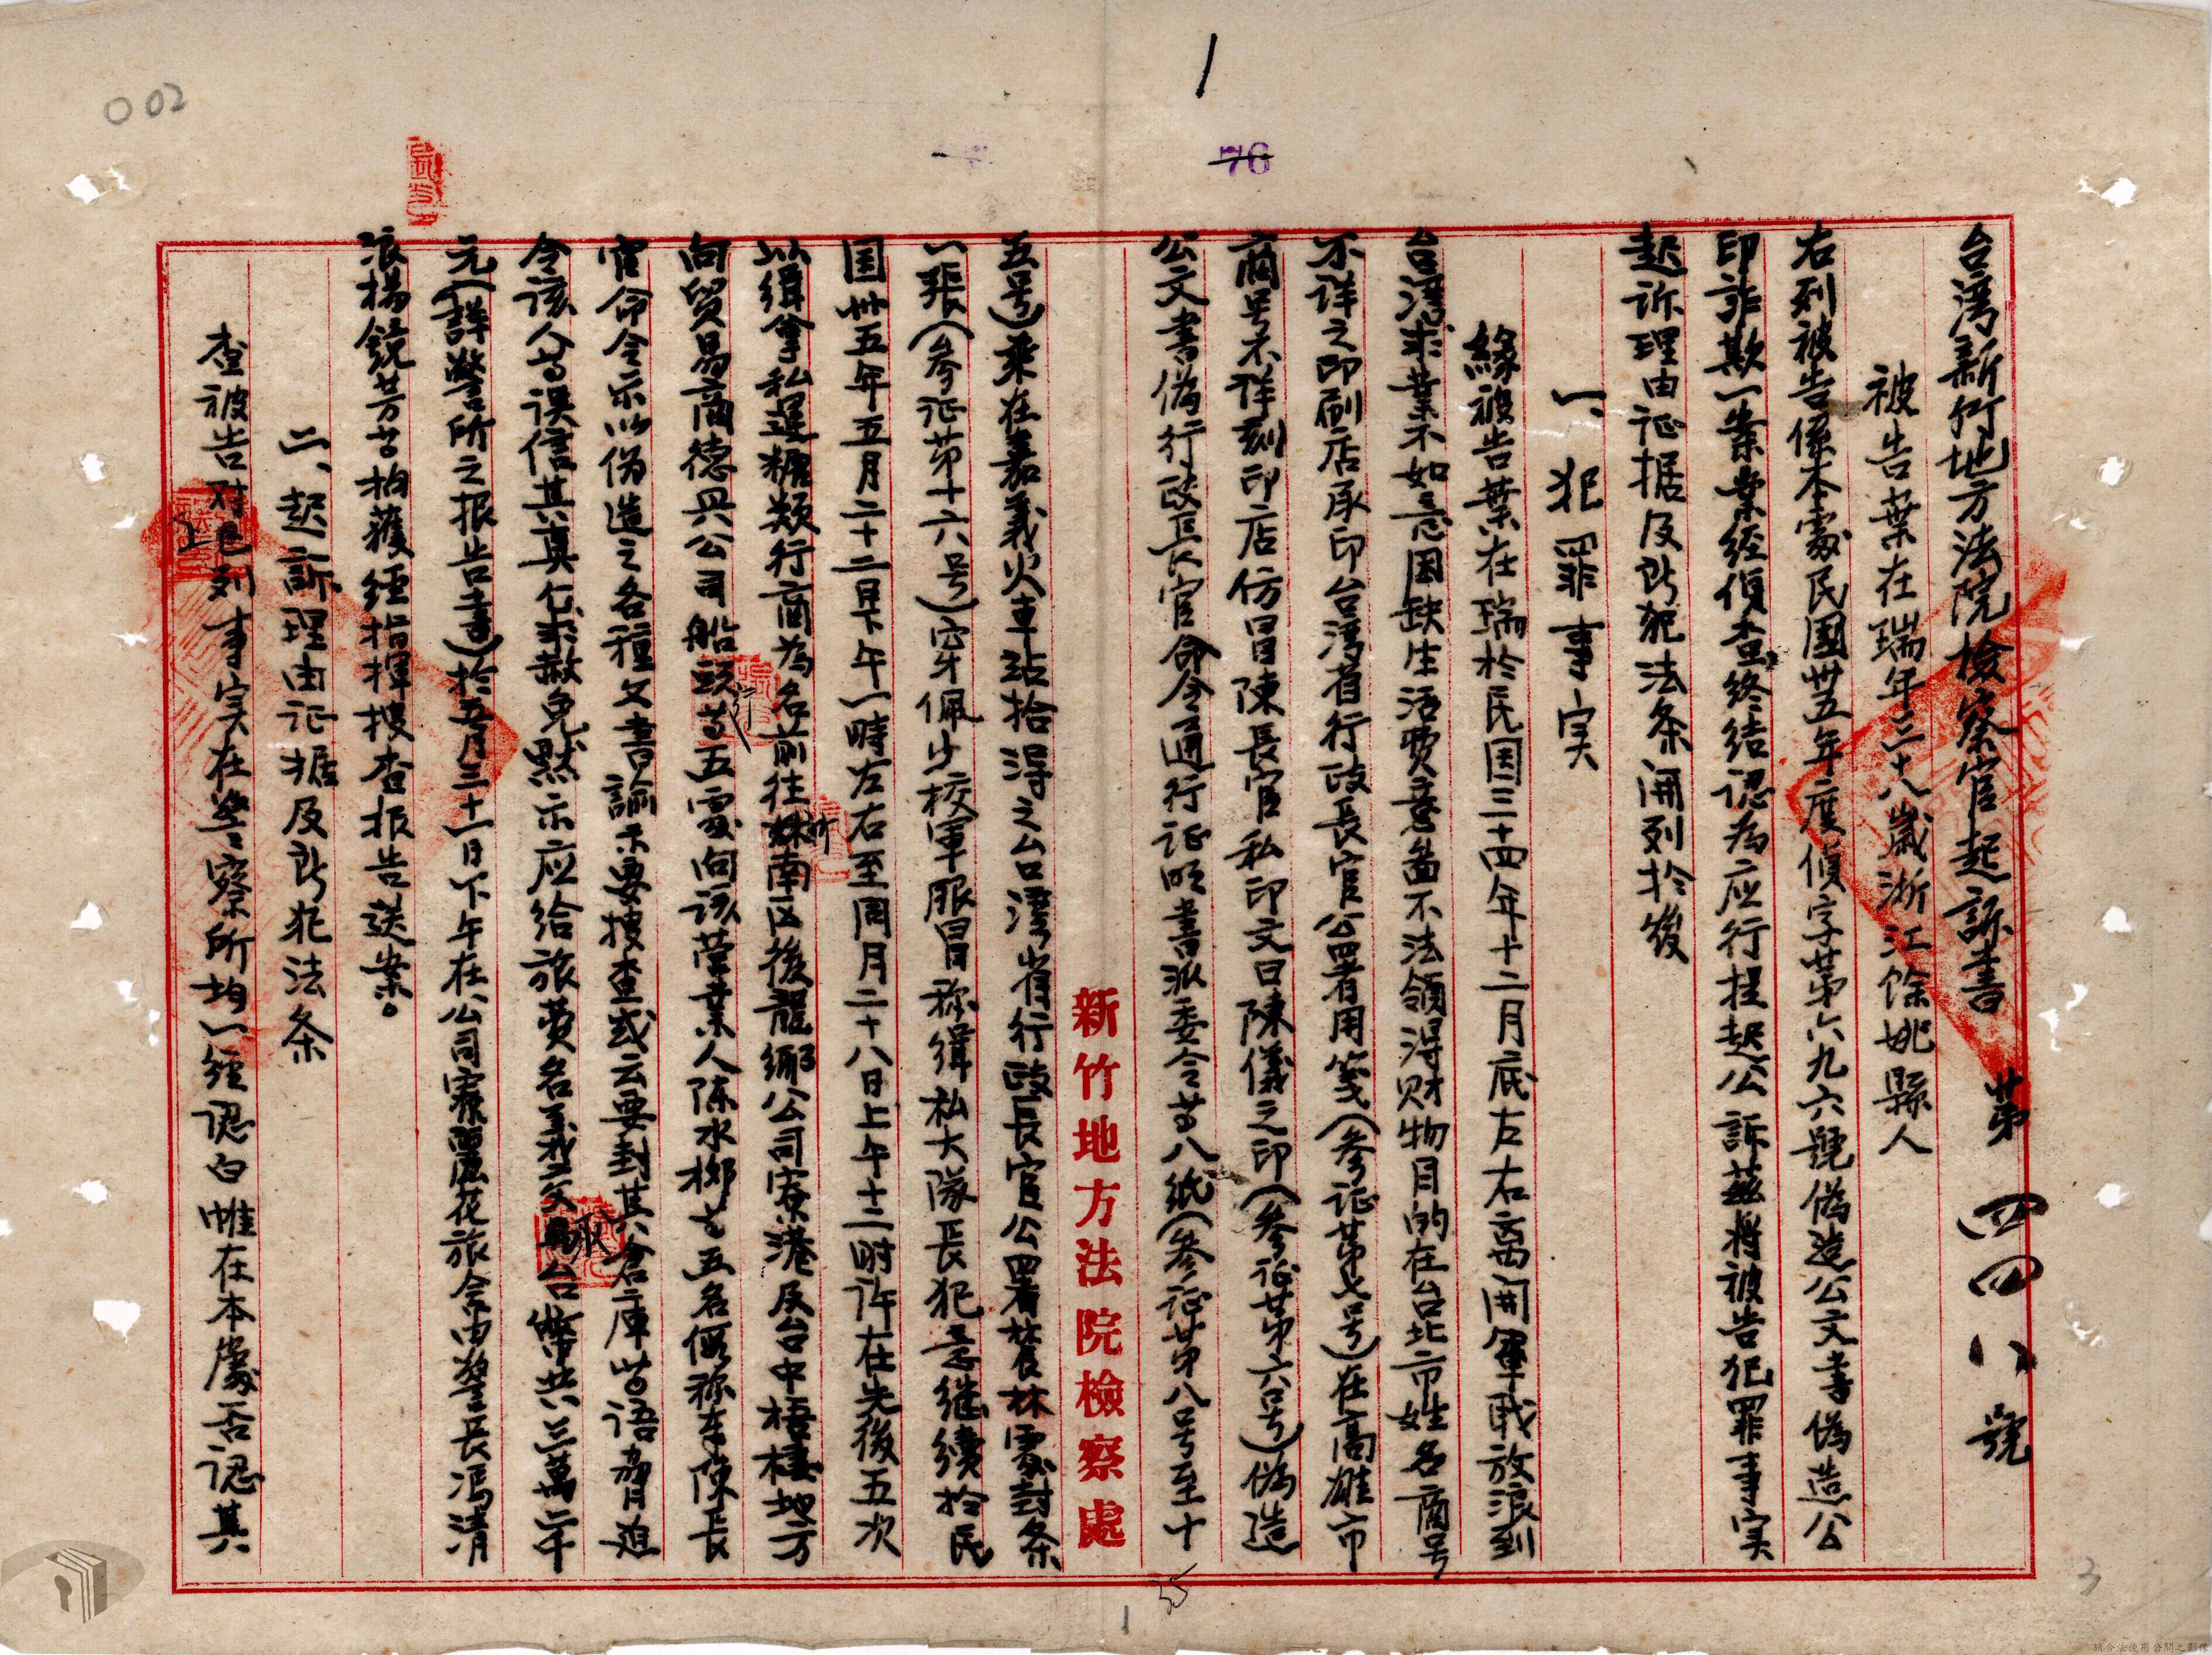 002
1
76
台湾新竹地方法院檢察官起訴書 第四四八號
被告葉在瑞年三十八歲浙江餘姚縣人
右列被告係本處民國卅五年度偵字第六九六號偽造公文書偽造公
印詐欺一案業經偵查終結認為应行提起公訴茲將被告犯罪事实
起訴理由証据及所犯法条開列於後
一、犯罪事实
緣被告葉在瑞於民国三十四年十二月底左右离開軍职放浪到
台湾求業不如意因缺生活費意啚不法領得财物目的在台北市姓名商号
不详之印刷店承印台湾省行政長官公署用箋(参证第七号)在高雄市
商号不详刻印店仿冒陳長官私印文曰陳儀之印(参证第六号)偽造
公文書偽行政長官命令通行证明書派委令等八紙(参证第八号至十
新竹地方法院檢察處
五号)乘在嘉義火車站拾得之台湾省行政長官公署农林處封条
一張(参证第十六号)穿佩少校軍服冒称緝私大隊長犯意继續於民
国卅五年五月二十二日下午一時左右至同月二十八日上午十二时许在先後五次
以缉拿私運糖類行商為名前往竹南区後龍鄉公司寮港及台中梧棲地方
向貿易商德兴公司船頭行等五處向该营業人陈水柳等五名假称奉陳長
官命令示以伪造之各種文書諭示要搜查或云要封其倉庫等语脅迫
令该人等误信其真乞求赦免默示应给旅费名義交取台幣共三萬二千
元(詳警所之报告書)於五月三十一日下午在公司寮麗花旅舍由警長馮清
浪楊鏡芳等拘獲经指揮搜查报告送案。
二、起訴理由证据及所犯法条
查被告对上列事实在警察所均一經認白惟在本處否認其
35
1
3
請合法使用公開之影像